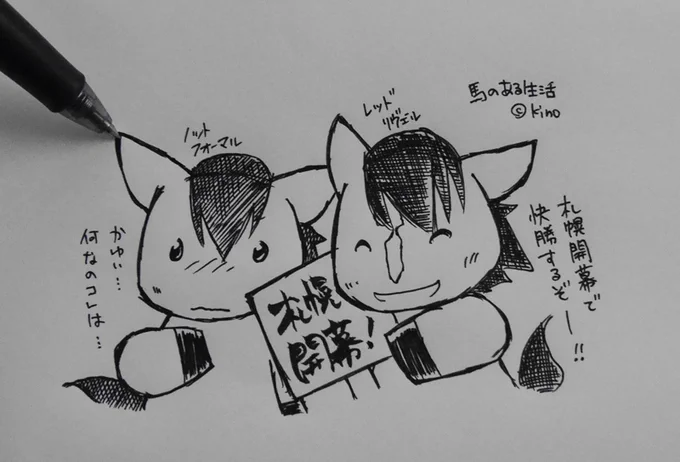 馬のある生活
©Kino
レッド
リヴェール
ノット
フォーマル
札幌開幕で
快勝するぞー!!
かゆい…
何なのコレは…
札幌
開幕!